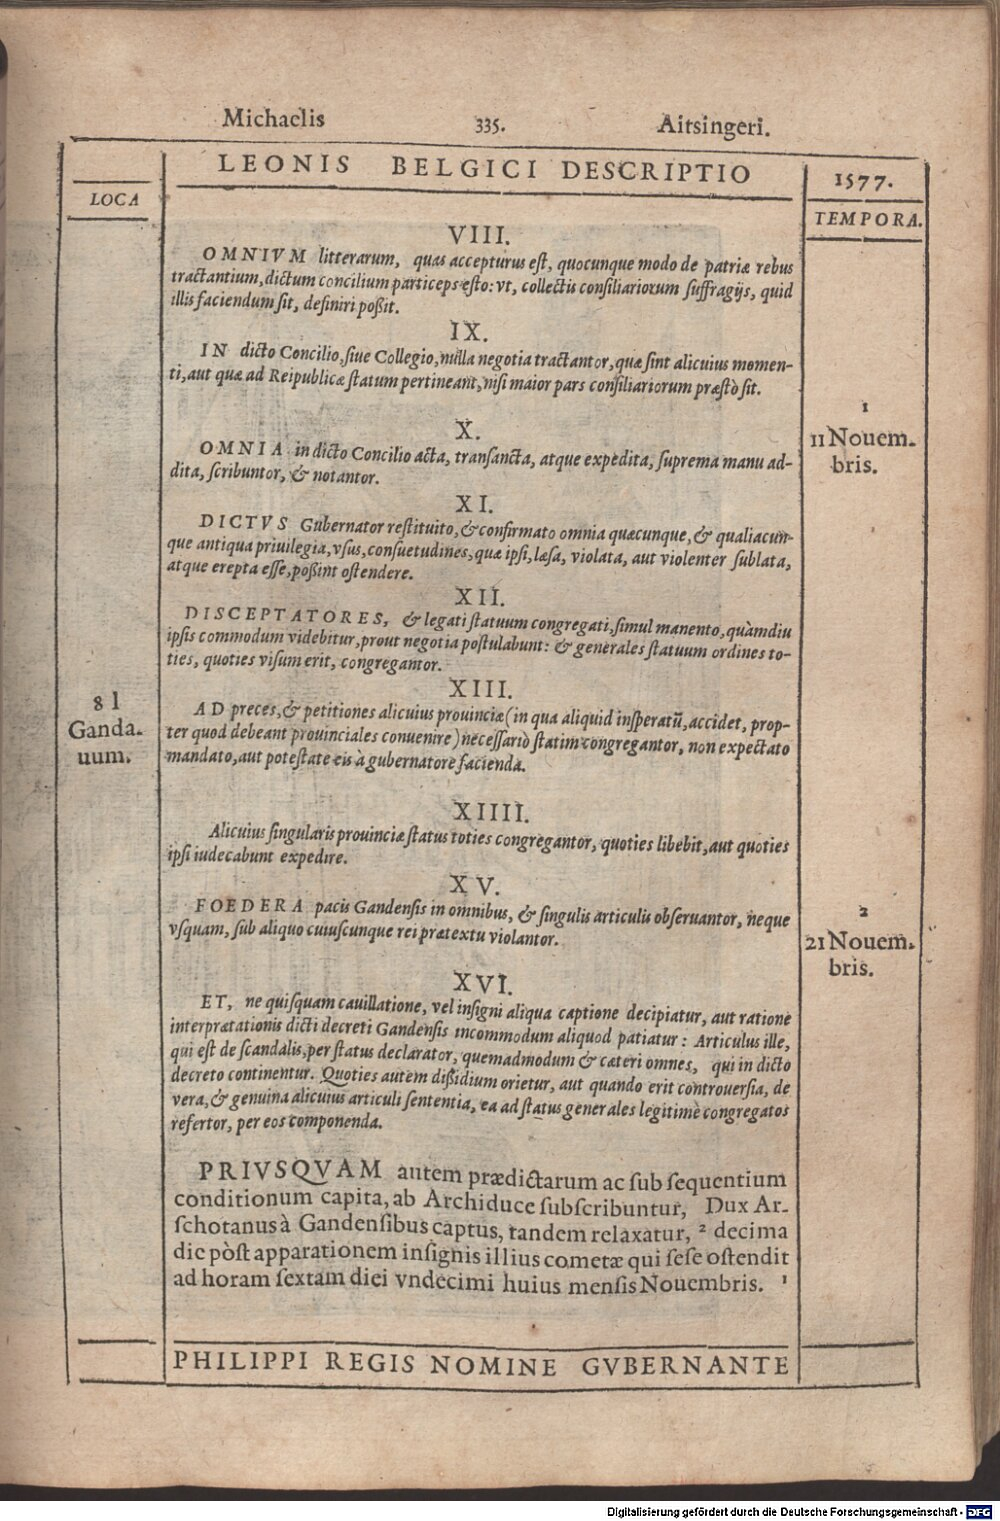 Michaelis 335. Aitsingeri.
LEONIS BELGICI DESCRIPTIO
1577.
LOCA
TEMPORA.
VIII.
OMNIVM litterarum, quas accepturus eſt, quocunque modo de patriæ rebus
tractantium, dictum concilium particeps eſto: vt, collectis conſiliariorum ſuffragijs, quid
illis faciendum ſit, definiri poßit.
IX.
IN dicto Concilio, ſiue Collegio, nulla negotia tractantor, quæ ſint alicuius momen-
ti, aut quæ ad Reipublicæ ſtatum pertineant, niſi maior pars conſiliariorum præſtò ſit.
X.
OMNIA in dicto Concilio acta, tranſancta, atque expedita, ſuprema manu ad-
dita, ſcribuntor, & notantor.
1
11 Nouem-
bris.
XI.
DICTVS Gubernator reſtituito, & confirmato omnia quæcunque, & qualiacun-
que antiqua priuilegia, vſus, conſuetudines, quæ ipſi, læſa, violata, aut violenter ſublata,
atque erepta eſſe, poßint oſtendere.
XII.
DISCEPTATORES, & legati ſtatuum congregati, ſimul manento, quàmdiu
ipſis commodum videbitur, prout negotia poſtulabunt: & generales ſtatuum ordines to-
ties, quoties viſum erit, congregantor.
XIII.
AD preces, & petitiones alicuius prouinciæ (in qua aliquid inſperatũ, accidet, prop-
ter quod debeant prouinciales conuenire) neceſſariò ſtatim congregantor, non expectato
mandato, aut poteſtate eis à gubernatore facienda.
81
Ganda-
uum.
XIIII.
Alicuius ſingularis prouinciæ ſtatus toties congregantor, quoties libebit, aut quoties
ipſi iudecabunt expedire.
XV.
FOEDERA pacis Gandenſis in omnibus, & ſingulis articulis obſeruantor, neque
vſquam, ſub aliquo cuiuſcunque rei prætextu violantor.
2
21 Nouem-
bris.
XVI.
ET, ne quiſquam cauillatione, vel inſigni aliqua captione decipiatur, aut ratione
interprætationis dicti decreti Gandenſis incommodum aliquod patiatur: Articulus ille,
qui eſt de ſcandalis, per ſtatus declarator, quemadmodum & cæteri omnes, qui in dicto
decreto continentur. Quoties autem dißidium orietur, aut quando erit controuerſia, de
vera, & genuina alicuius articuli ſententia, ea ad ſtatus generales legitimè congregatos
refertor, per eos componenda.
PRIVSQVAM autem prædictarum ac ſub ſequentium
conditionum capita, ab Archiduce ſubſcribuntur, Dux Ar-
ſchotanus à Gandenſibus captus, tandem relaxatur, ² decima
die pòſt apparationem inſignis illius cometæ qui ſeſe oſtendit
ad horam ſextam diei vndecimi huius menſis Nouembris. ¹
PHILIPPI REGIS NOMINE GVBERNANTE
Digitalisierung gefördert durch die Deutsche Forschungsgemeinschaft - DFG